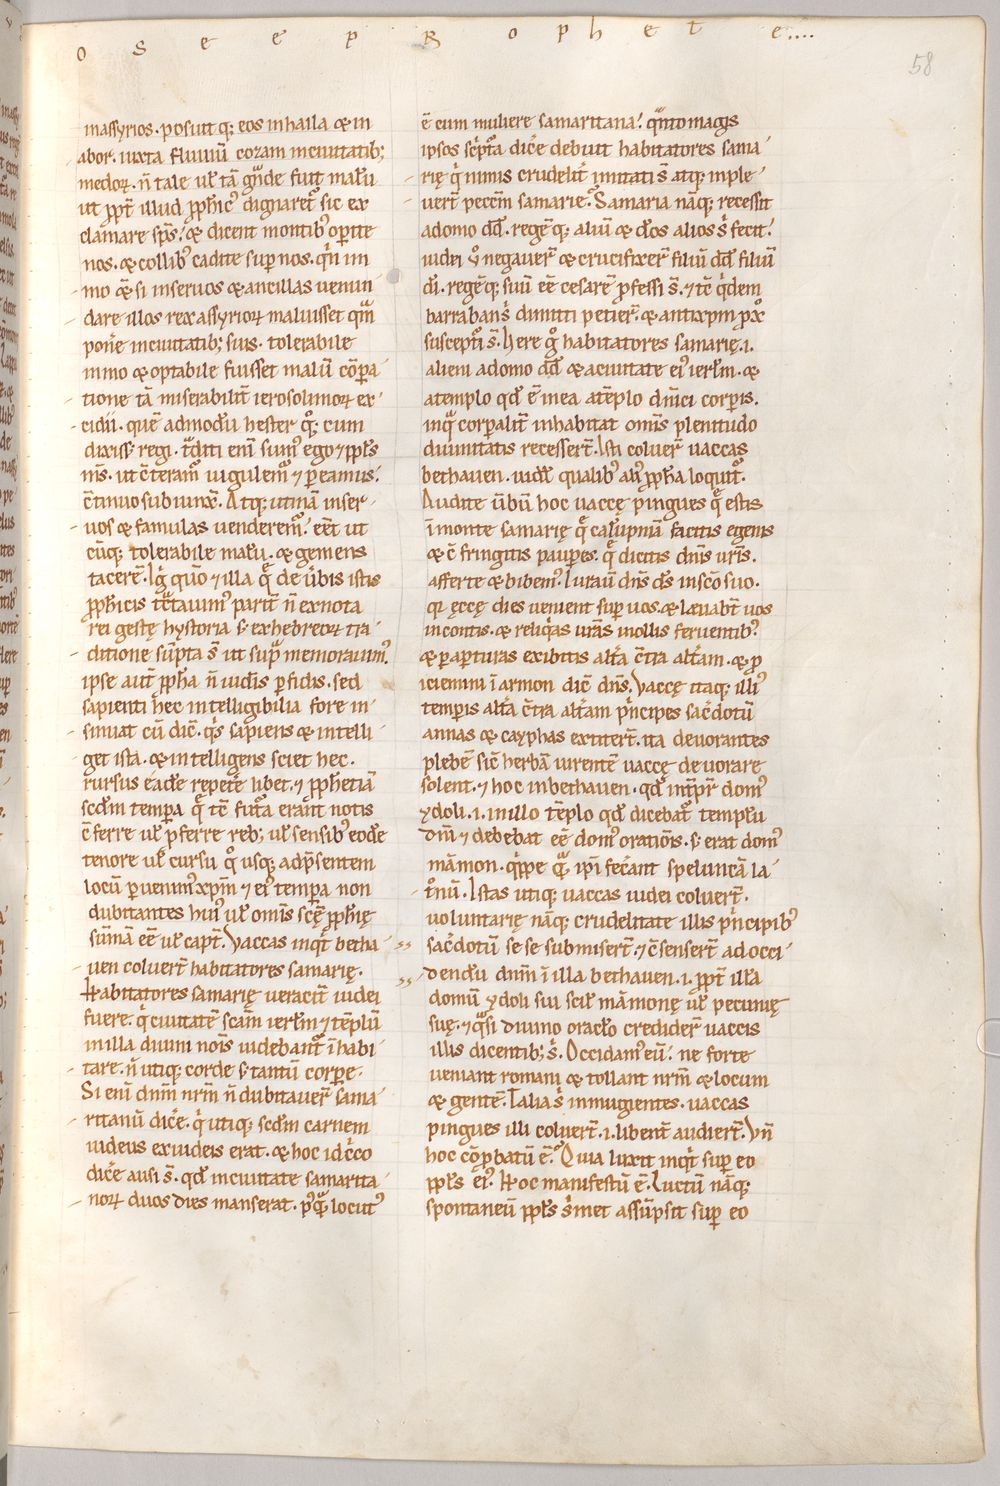 O S E E P R O P H E T E....
58
inassyrios. posuit q; eos inhaila & in
abor. iuxta fluuiū gozam inciuitatib;
medoꝝ. n̄ tale uł tā gͣnde fuit malū
ut ꝓpt̄ illud ꝓph̄icꝰ dignaret᷑ sic ex
clamare sp̄s! & dicent montibꝰ oꝑite
nos. & collibꝰ cadite suꝑ nos. qͥn im
mo & si inseruos & ancillas uenun
dare illos rex assyrioꝝ maluisset qͣm
pon̄e inciuitatib; suis. tolerabile
immo & optabile fuisset malū cōpa
tione tā miserabilit̄ ierosolimoꝝ ex
cidii. quē admodū hester qͦ; cum
dixiss& regi. tͣditi enī sumꝰ ego ⁊ ppłs
m̄s. ut ɔ̄teramᷣ iugulemᷣ ⁊ ꝑeamus!
ɔ̄tinuo subiunx̄. Atq; utinā inser
uos & famulas uenderemᷣ! eēt ut
cūq; tolerabile malū. & gemens
tacerē. Igͥ quō ⁊ illa q̄ de ūbis istis
ꝓph̄icis tͣctauimꝰ partī n̄ exnota
rei gestę hystoria s; exhebreoꝝ tra
ditione sūpta s̄ ut supͣ memorauimꝰ.
ipse aut̄ ꝓph̄a n̄ iudeis ꝑfidis. sed
sapienti h̄ec intelligibilia fore in
sinuat cū dic̄. qͥs sapiens & intelli
get ista. & intelligens sciet hec.
rursus eadē repet̄e libet. ⁊ ꝓph̄etiā
scdm tempa q̄ tē futͣa erant notis
ɔ̄ferre uł p̄ferre reb; uł sensibꝰ eodē
tenore uł cursu qͦ usq; adp̄sentem
locū ꝑuenimꝰ xp̄m ⁊ eiꝰ tempa non
dubitantes huiꝰ uł omīs scę̄ ꝓph̄ię
sūmā eē uł capt̄. Vaccas inqͥt betha
uen coluert̄ habitatores samarię.
Habitatores samarię ueracit̄ iudei
fuere. qͥ ciuitatē scām ierłm ⁊ tēplū
inilla diuini nōis uidebantᷣ īhabi
tare. n̄ utiq; corde s; tantū corpe.
Si enī dn̄m nr̄m n̄ dubitauer̄ sama
ritanū dic̄e. qͥ utiq; scdm carnem
iudeus exiudeis erat. & hoc idc̄co
dic̄e ausi s̄. qđ inciuitate samarita
noꝝ duos dies manserat. p̄qͣ locutꝰ
ē cum muliere samaritana! qͣntomagis
ipsos sc̄pta dic̄e debuit habitatores sama
rię qͥ nimis crudelit̄ imitati s̄ atq; imple
uert̄ pecc̄m samarie! Samaria nāq; recessit
adomo dđ. regē q; aliū & dōs alios s̄ fecit!
iudei ū negauer̄ & crucifixer̄ filiū dđ filiū
dī. regē q; suū eē cesarē ꝓfessi s̄. ⁊ tē qͥdem
barraban s̄ dimitti petier̄. & antixp̄m ꝓx̄
suscepti s̄. Here gͦ habitatores samarię. i.
alieni adomo dđ & aciuitate eiꝰ ierłm. &
atemplo qđ ē inea atēplo dn̄ici corp̄is.
inqͦ corꝑalit̄ inhabitat omīs plenitudo
diuinitatis recessert̄. Isti coluer̄ uaccas
bethauen. uidel qualibꝰ aliꝰ ꝓph̄a loquitᷣ.
Audite ūbū hoc uaccę pingues q̄ estis
īmonte samarię q̄ calūpniā facitis egenis
& ɔ̄fringitis pauꝑes. q̄ dicitis dn̄is ur̄is.
afferte & bibemꝰ. Iurauit dn̄s ds̄ insc̄o suo.
qꝛ ęcce dies uenient suꝑ uos. & leuabt̄ uos
incontis. & reliqͥas ur̄as inollis feruentibꝰ
& ꝑapturas exibitis alta ɔ̄tra altam. & ꝓ
iciemini ī armon dic̄ dn̄s. Vaccę itaq; illiꝰ
temp̄is alta ɔ̄tra altam pͥncipes sac̄dotū
annas & cayphas extitert̄. ita deuorantes
plebē sic̄ herbā uirentē uaccę deuorare
solent. ⁊ hoc inbethauen. qđ int̄pr̄ domꝰ
ydoli. i. inillo tēplo qđ dicebatᷣ templū
dn̄i ⁊ debebat eē domꝰ oratiōis. s; erat domꝰ
māmon. qͥppe qͣ ip̄i fec̄ant speluncā la
tͦnū. Istas utiq; uaccas iudei coluert̄.
uoluntarię nāq; crudelitate illis pͥncipibꝰ
sac̄dotū se se submisert̄. ⁊ ɔ̄sensert̄ ad occi
dendū dn̄m ī illa bethauen. i. ꝓpt̄ illā
domū ydoli sui scił māmonę uł pecunię
suę. ⁊ qͣsi diuino oraclo credider̄ uaccis
illis dicentib; s̄. Occidamꝰ eū! ne forte
ueniant romani & tollant nr̄m & locum
& gentē. Talia s̄ inmugientes. uaccas
pingues illi coluert̄. i. libent̄ audiert̄. Vn̄
hoc cōpbatū ē! Quia luxit inqͥt suꝑ eo
ppłs eiꝰ. Hoc manifestū ē. Luctū nāq;
spontaneū ppłs s̄met assūpsit suꝑ eo